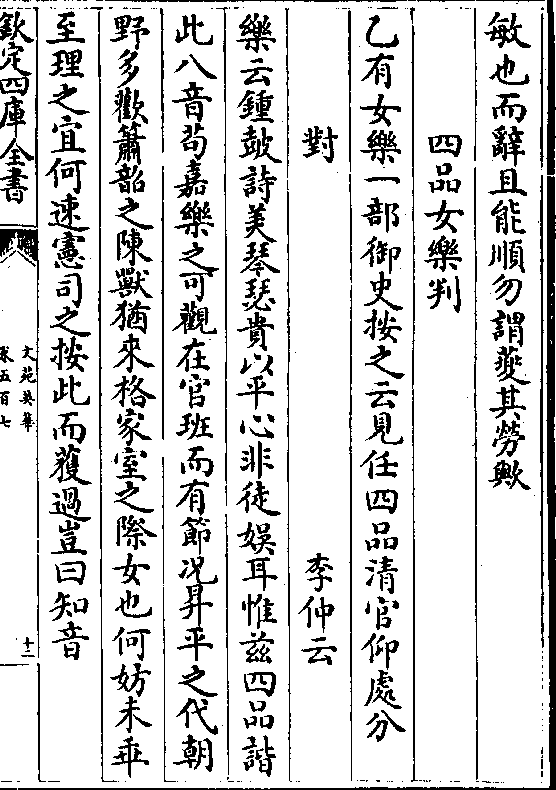 敏也而辭且能順勿謂夔其勞歟
四品女樂判
乙有女樂一部御史按之云見任四品清官仰處分
對 李仲云
樂云鍾鼓詩美琴瑟貴以平心非徒娛耳惟兹四品諧
此八音苟嘉樂之可觀在官班而有節况昇平之代朝
野多歡簫韶之陳獸猶來格家室之際女也何妨未乖
至理之宜何速憲司之按此而獲過豈曰知音
欽定四庫全書
文苑英華
卷五百七
十二